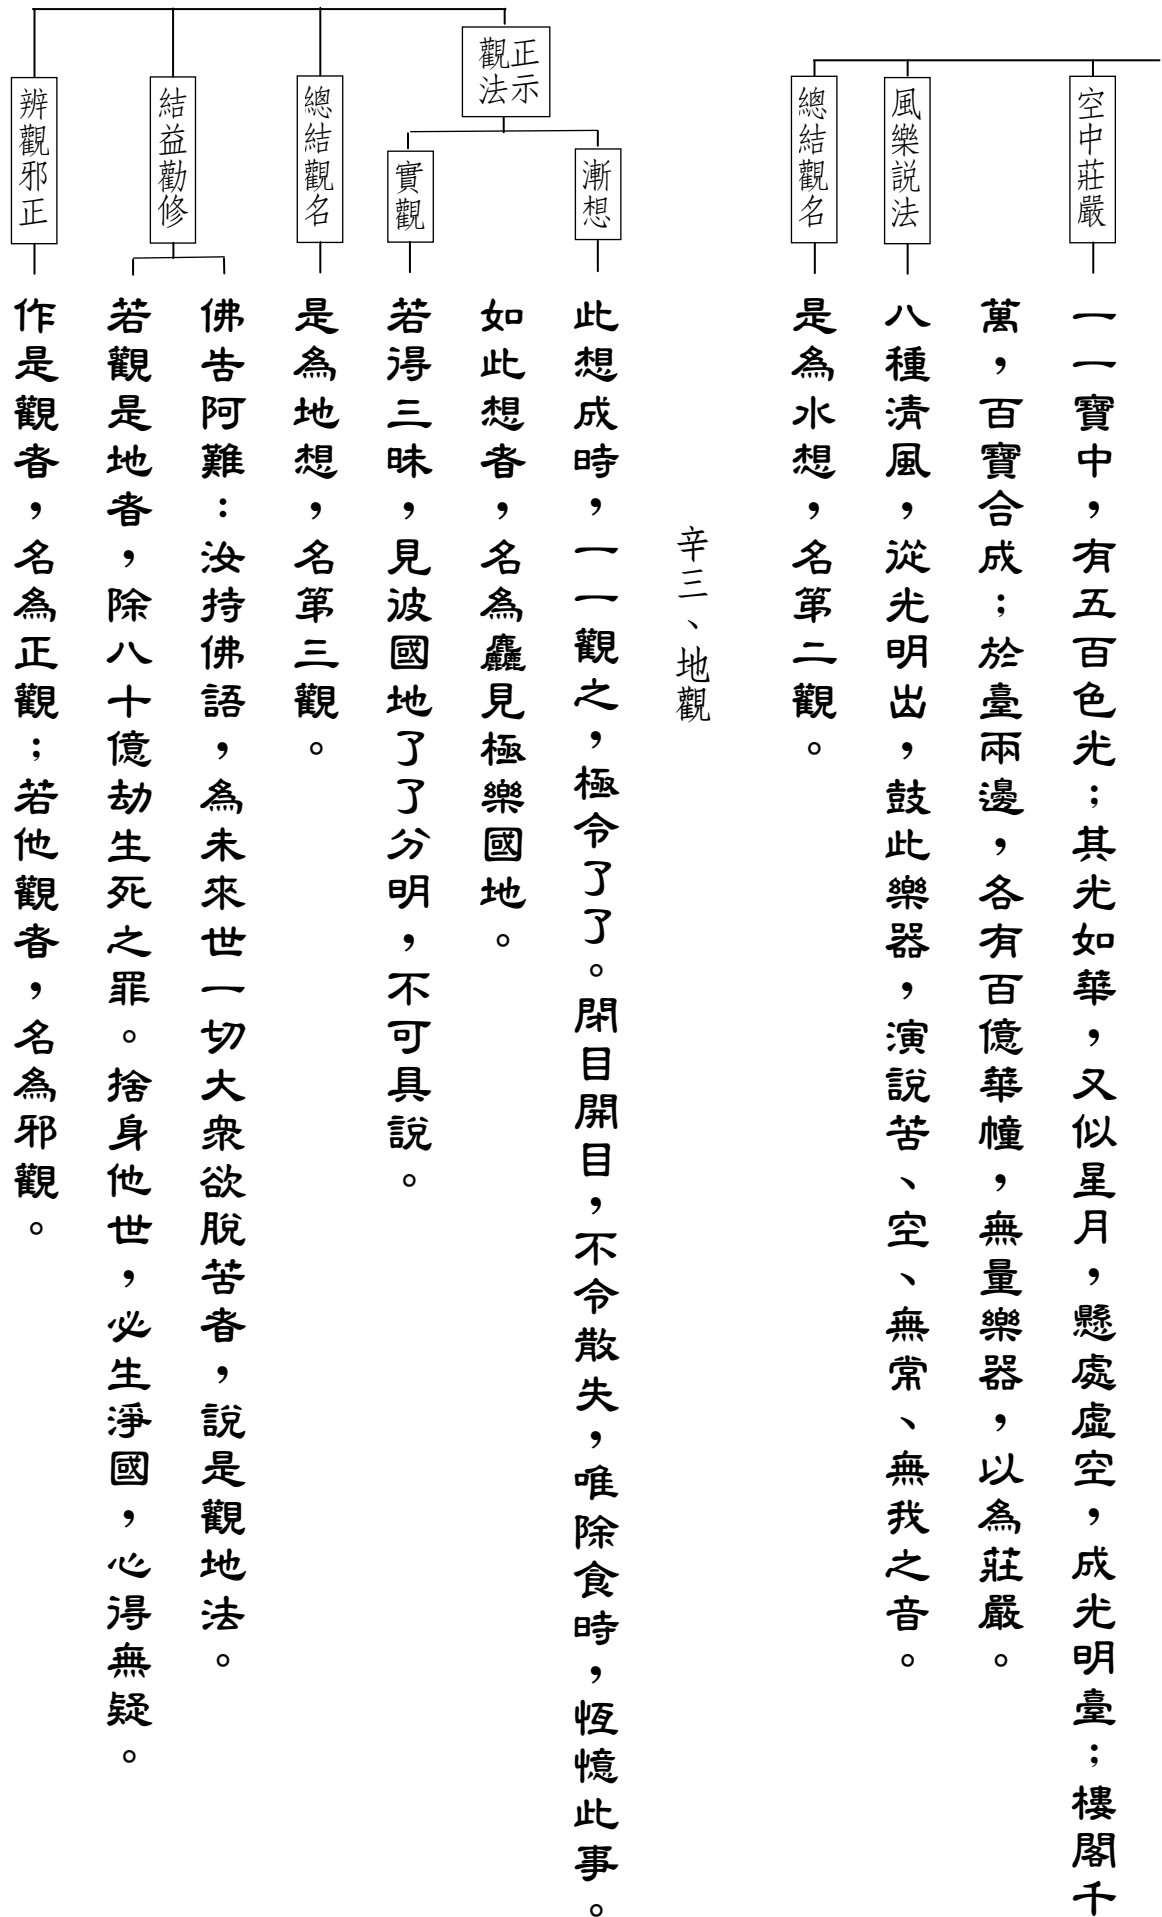 空中莊嚴
一一寶中，有五百色光；其光如華，又似星月，懸處虛空，成光明臺；樓閣千
萬，百寶合成；於臺兩邊，各有百億華幢，無量樂器，以為莊嚴。
風樂說法
八種清風，從光明出，鼓此樂器，演說苦、空、無常、無我之音。
總結觀名
是為水想，名第二觀。
辛三、地觀
正示
觀法
漸想
此想成時，一一觀之，極令了了。閉目開目，不令散失，唯除食時，恆憶此事。
如此想者，名為麤見極樂國地。
實觀
若得三昧，見波國地了了分明，不可具說。
總結觀名
是為地想，名第三觀。
結益勸修
佛告阿難：汝持佛語，為未來世一切大眾欲脫苦者，說是觀地法。
若觀是地者，除八十億劫生死之罪。捨身他世，必生淨國，心得無疑。
辨觀邪正
作是觀者，名為正觀；若他觀者，名為邪觀。